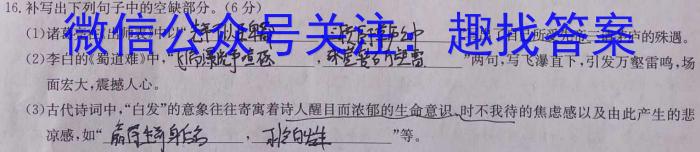 16.补写出下列句子中的空缺部分。(6分)
(1)诸
微信公众号关注：趣找答案
的殊遇。
(2)李白的《蜀道难》中,“飞湍瀑流争喧豗,砯崖 ”两句,写飞瀑直下,引发万壑雷鸣,场
面宏大,震撼人心。
(3)古代诗词中,“白发”的意象往往寄寓着诗人醒目而浓郁的生命意识、时不我待的焦虑感以及由此产生的悲
凉感,如“赢得生前身后名, 可怜白发生”等。